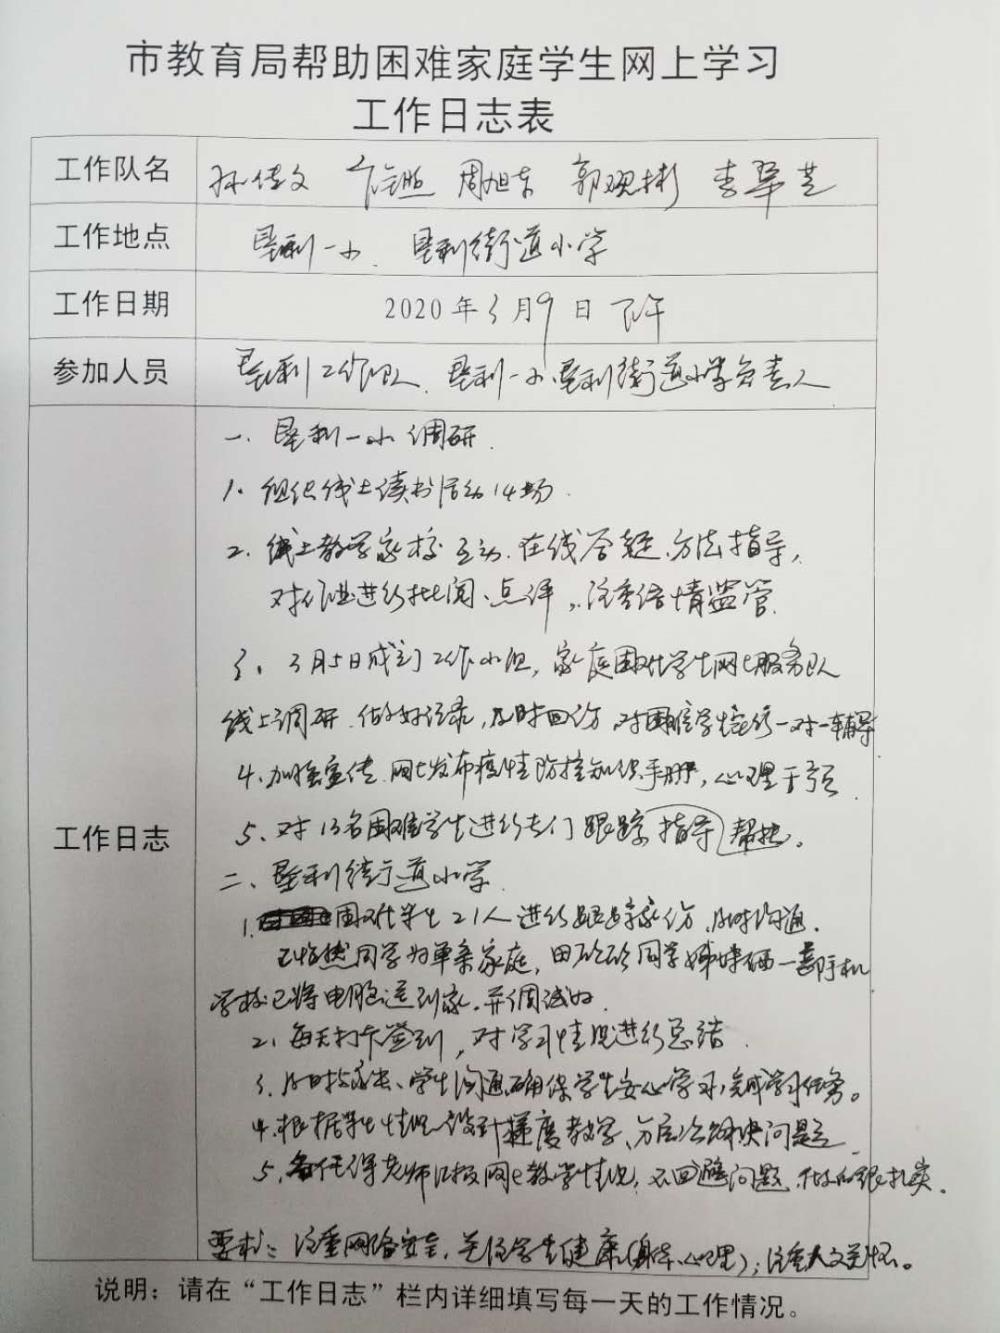 市教育局帮助困难家庭学生网上学习
工作日志表
工作队名 孙佳文 周旭东 郭观彬 李翠芝
工作地点 垦利一小、垦利街道小学
工作日期 2020年3月9日 下午
参加人员 垦利工作队、垦利一小、垦利街道小学负责人
工作日志
一、垦利一小调研.
1、组织线上读书活动14场.
2、线上教学家校互动.在线答疑、方法指导,
对作业进行批阅、点评,注重语情监管.
3、3月5日成立工作小组,家庭困难学生网上服务队
线上调研.做好记录,及时回访 对困难学生进行一对一辅导
4、加强宣传.网上发布疫情防控知识手册,心理干预
5、对13名困难学生进行专门跟踪指导帮扶。
二、垦利街道小学.
1.困难学生21人进行跟踪家访,及时沟通.
同学为单亲家庭,田硕硕同学姊妹俩一部手机
学校已将电脑送到家.并调试好
2、每天打卡签到,对学习情况进行总结.
3、及时与家长、学生沟通,确保学生安心学习,完成学习任务。
4.根据学生情况设计梯度教学、分层次解决问题.
5、各任课老师汇报网上教学情况,不回避问题,做的很扎实.
要求:注重网络安全,关注学生健康(身体、心理);注重人文关怀。
说明:请在“工作日志”栏内详细填写每一天的工作情况。